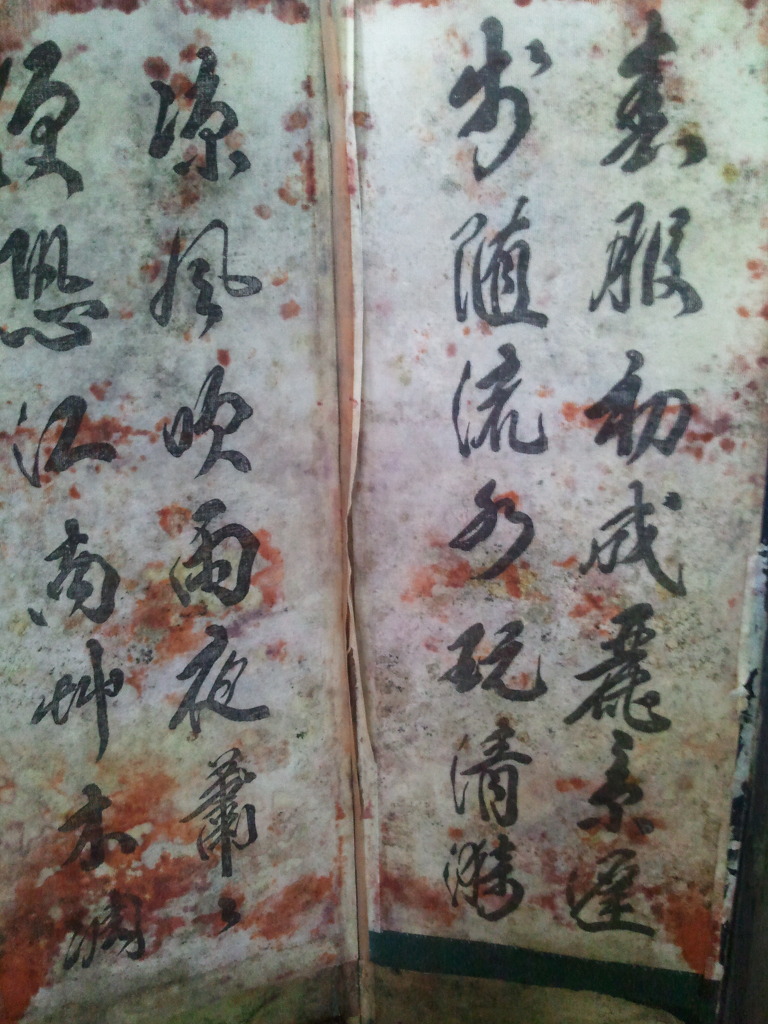 春服初成麗景遲
步隨流水玩清漪
涼風吹雨夜蕭〻
便恐江南艸木凋